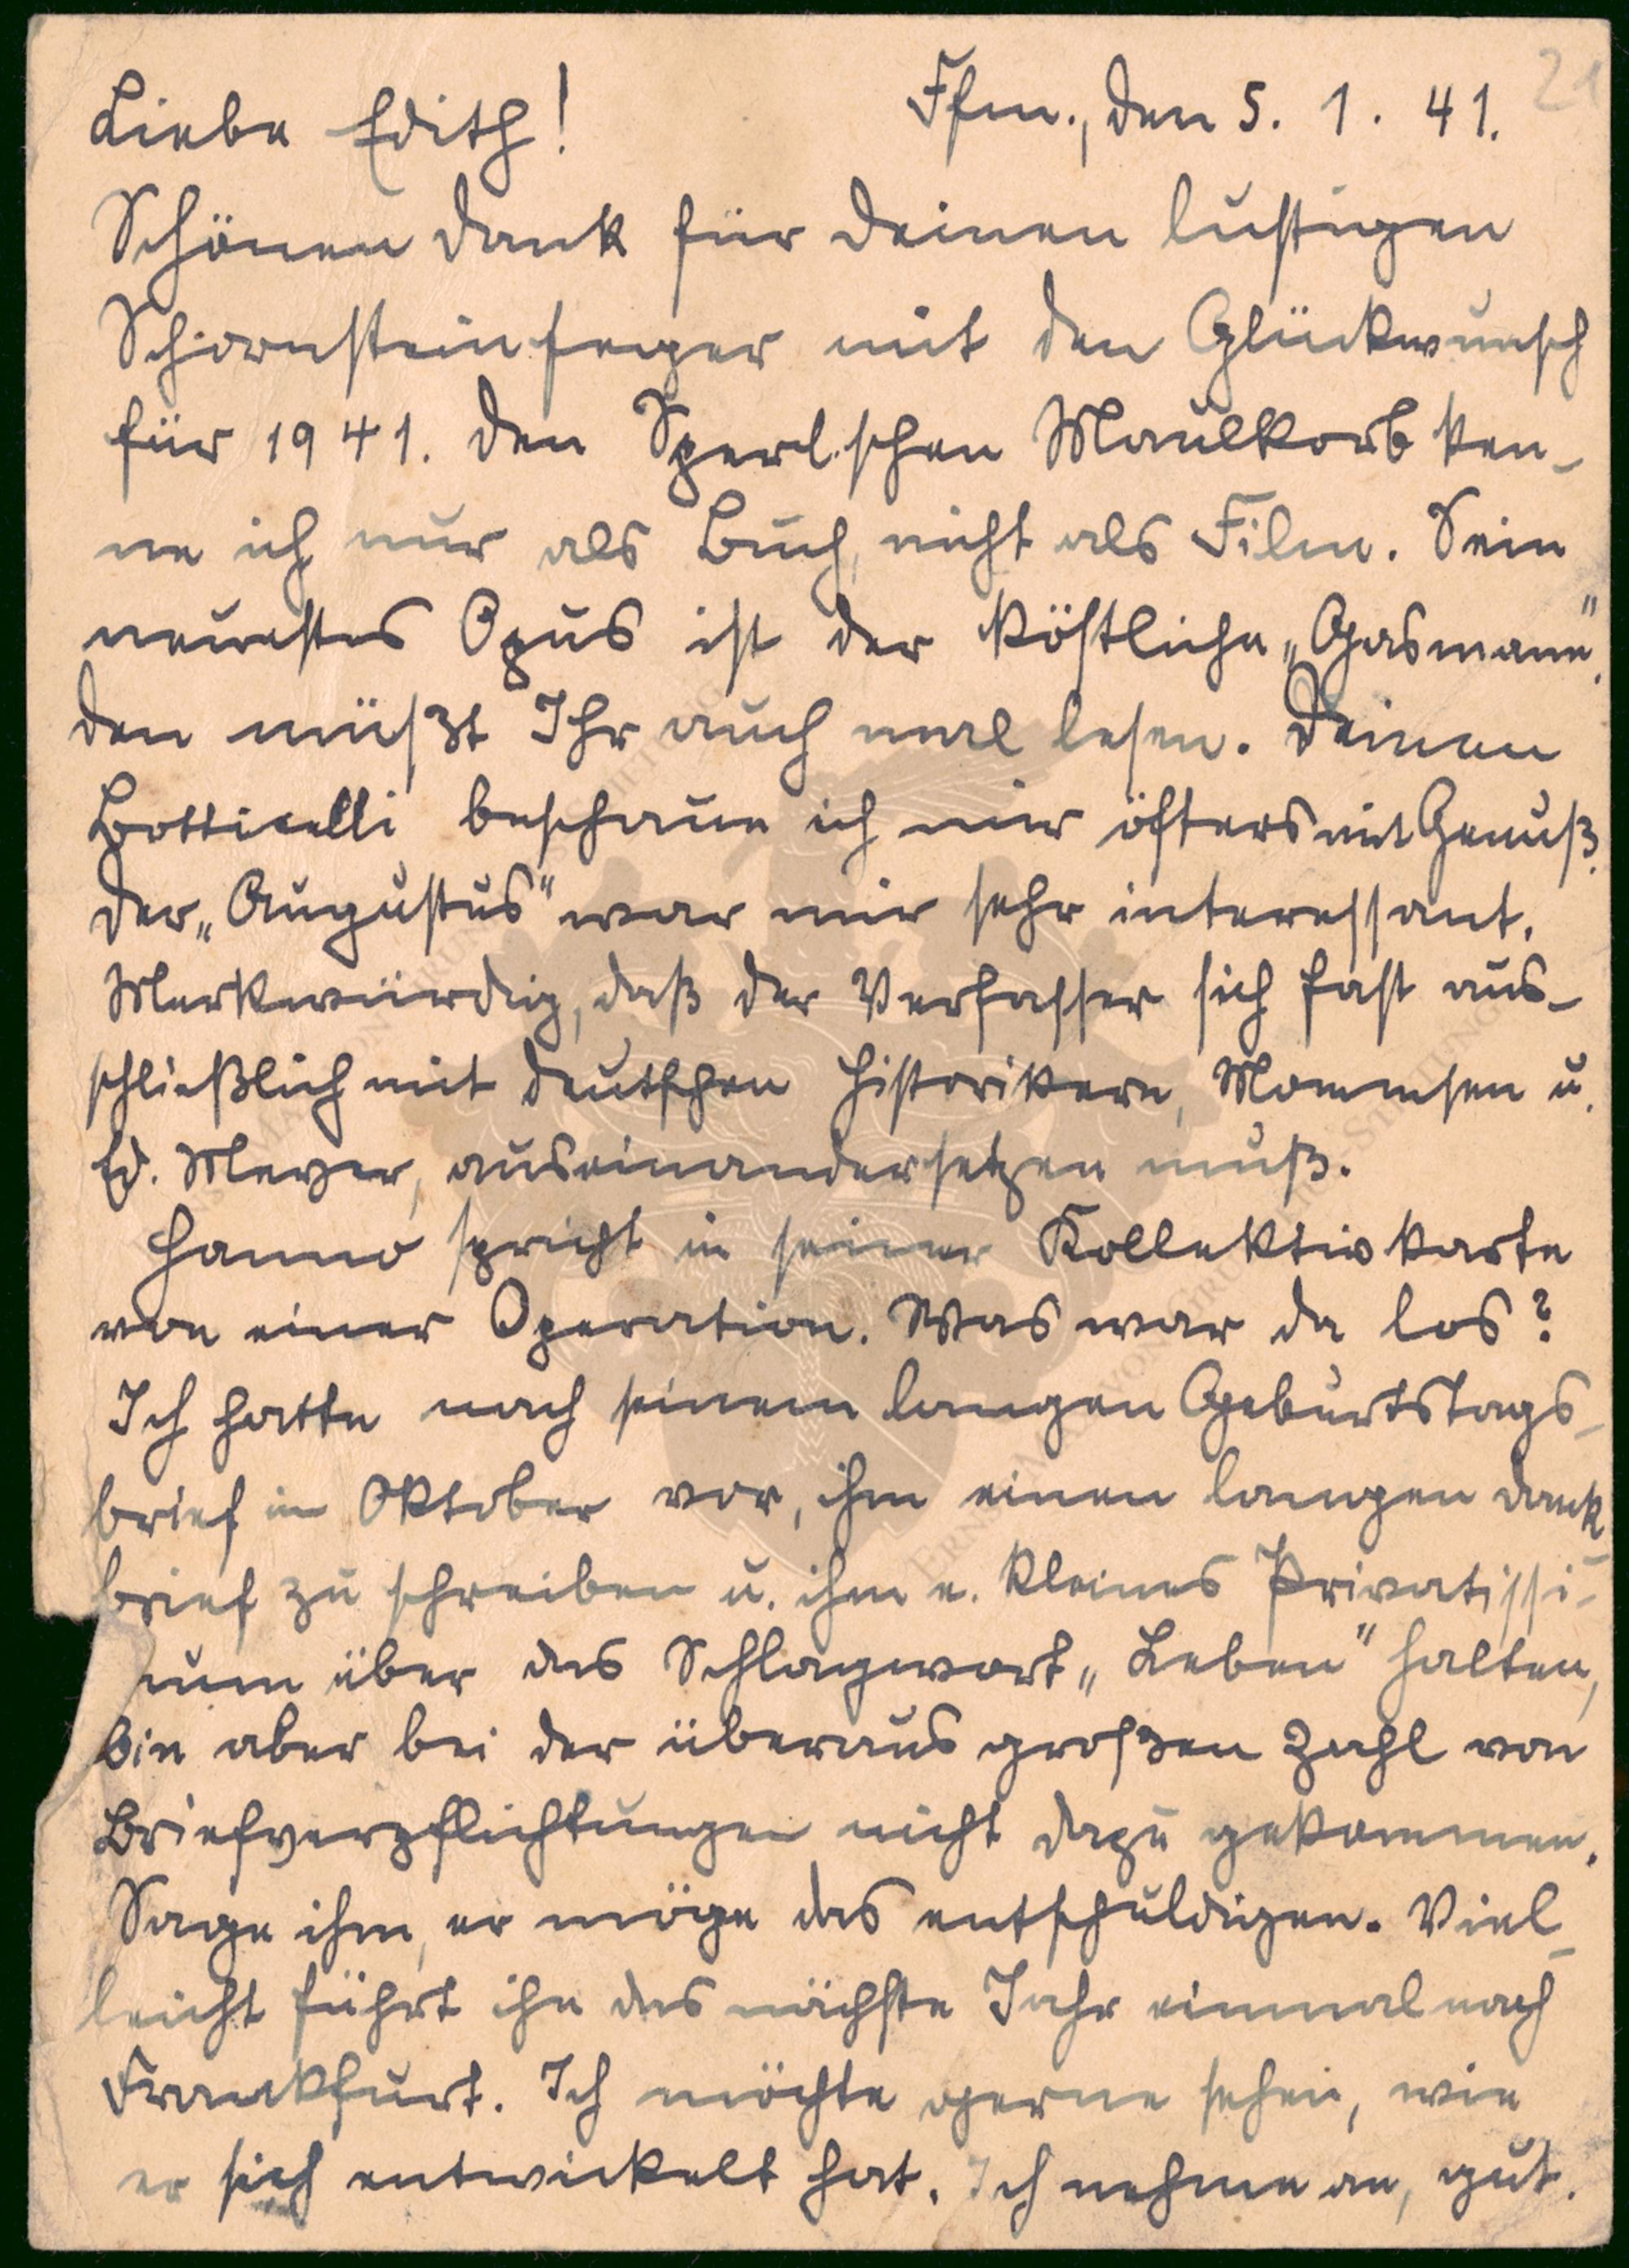 21
Liebe Edith! Ffm., den 5. 1. 41.
Schönen Dank für Deinen lustigen
Schornsteinfeger mit den Glückwunsch
für 1941. Den Sperl.schen Maulkorb ken-
ne ich nur als Buch, nicht als Film. Sein
neuestes Opus ist der köstliche „Gasmann“.
Den müßt Ihr auch mal lesen. Deinen
Botticelli beschaue ich mir öfters mit Genuß.
Der „Augustus“ war mir sehr interessant.
Merkwürdig, daß der Verfasser sich fast aus-
schließlich mit deutschen Historikern, Mommsen u.
Ed. Meyer, auseinandersetzen muß.
Hanno spricht in seiner Kollektivkarte
von einer Operation. Was war da los?
Ich hatte nach seinem langen Geburtstags-
brief im Oktober vor, ihm einen langen Dank
brief zu schreiben u. ihm e. kleines Privatissi-
mum über das Schlagwort „Leben“ halten,
bin aber bei der überaus großen Zahl von
Briefverpflichtungen nicht dazu gekommen.
Sage ihm, er möge das entschuldigen. Viel-
leicht führt ihn das nächste Jahr einmal nach
Frankfurt. Ich möchte gerne sehen, wie
er sich entwickelt hat. Ich nehme an, gut.